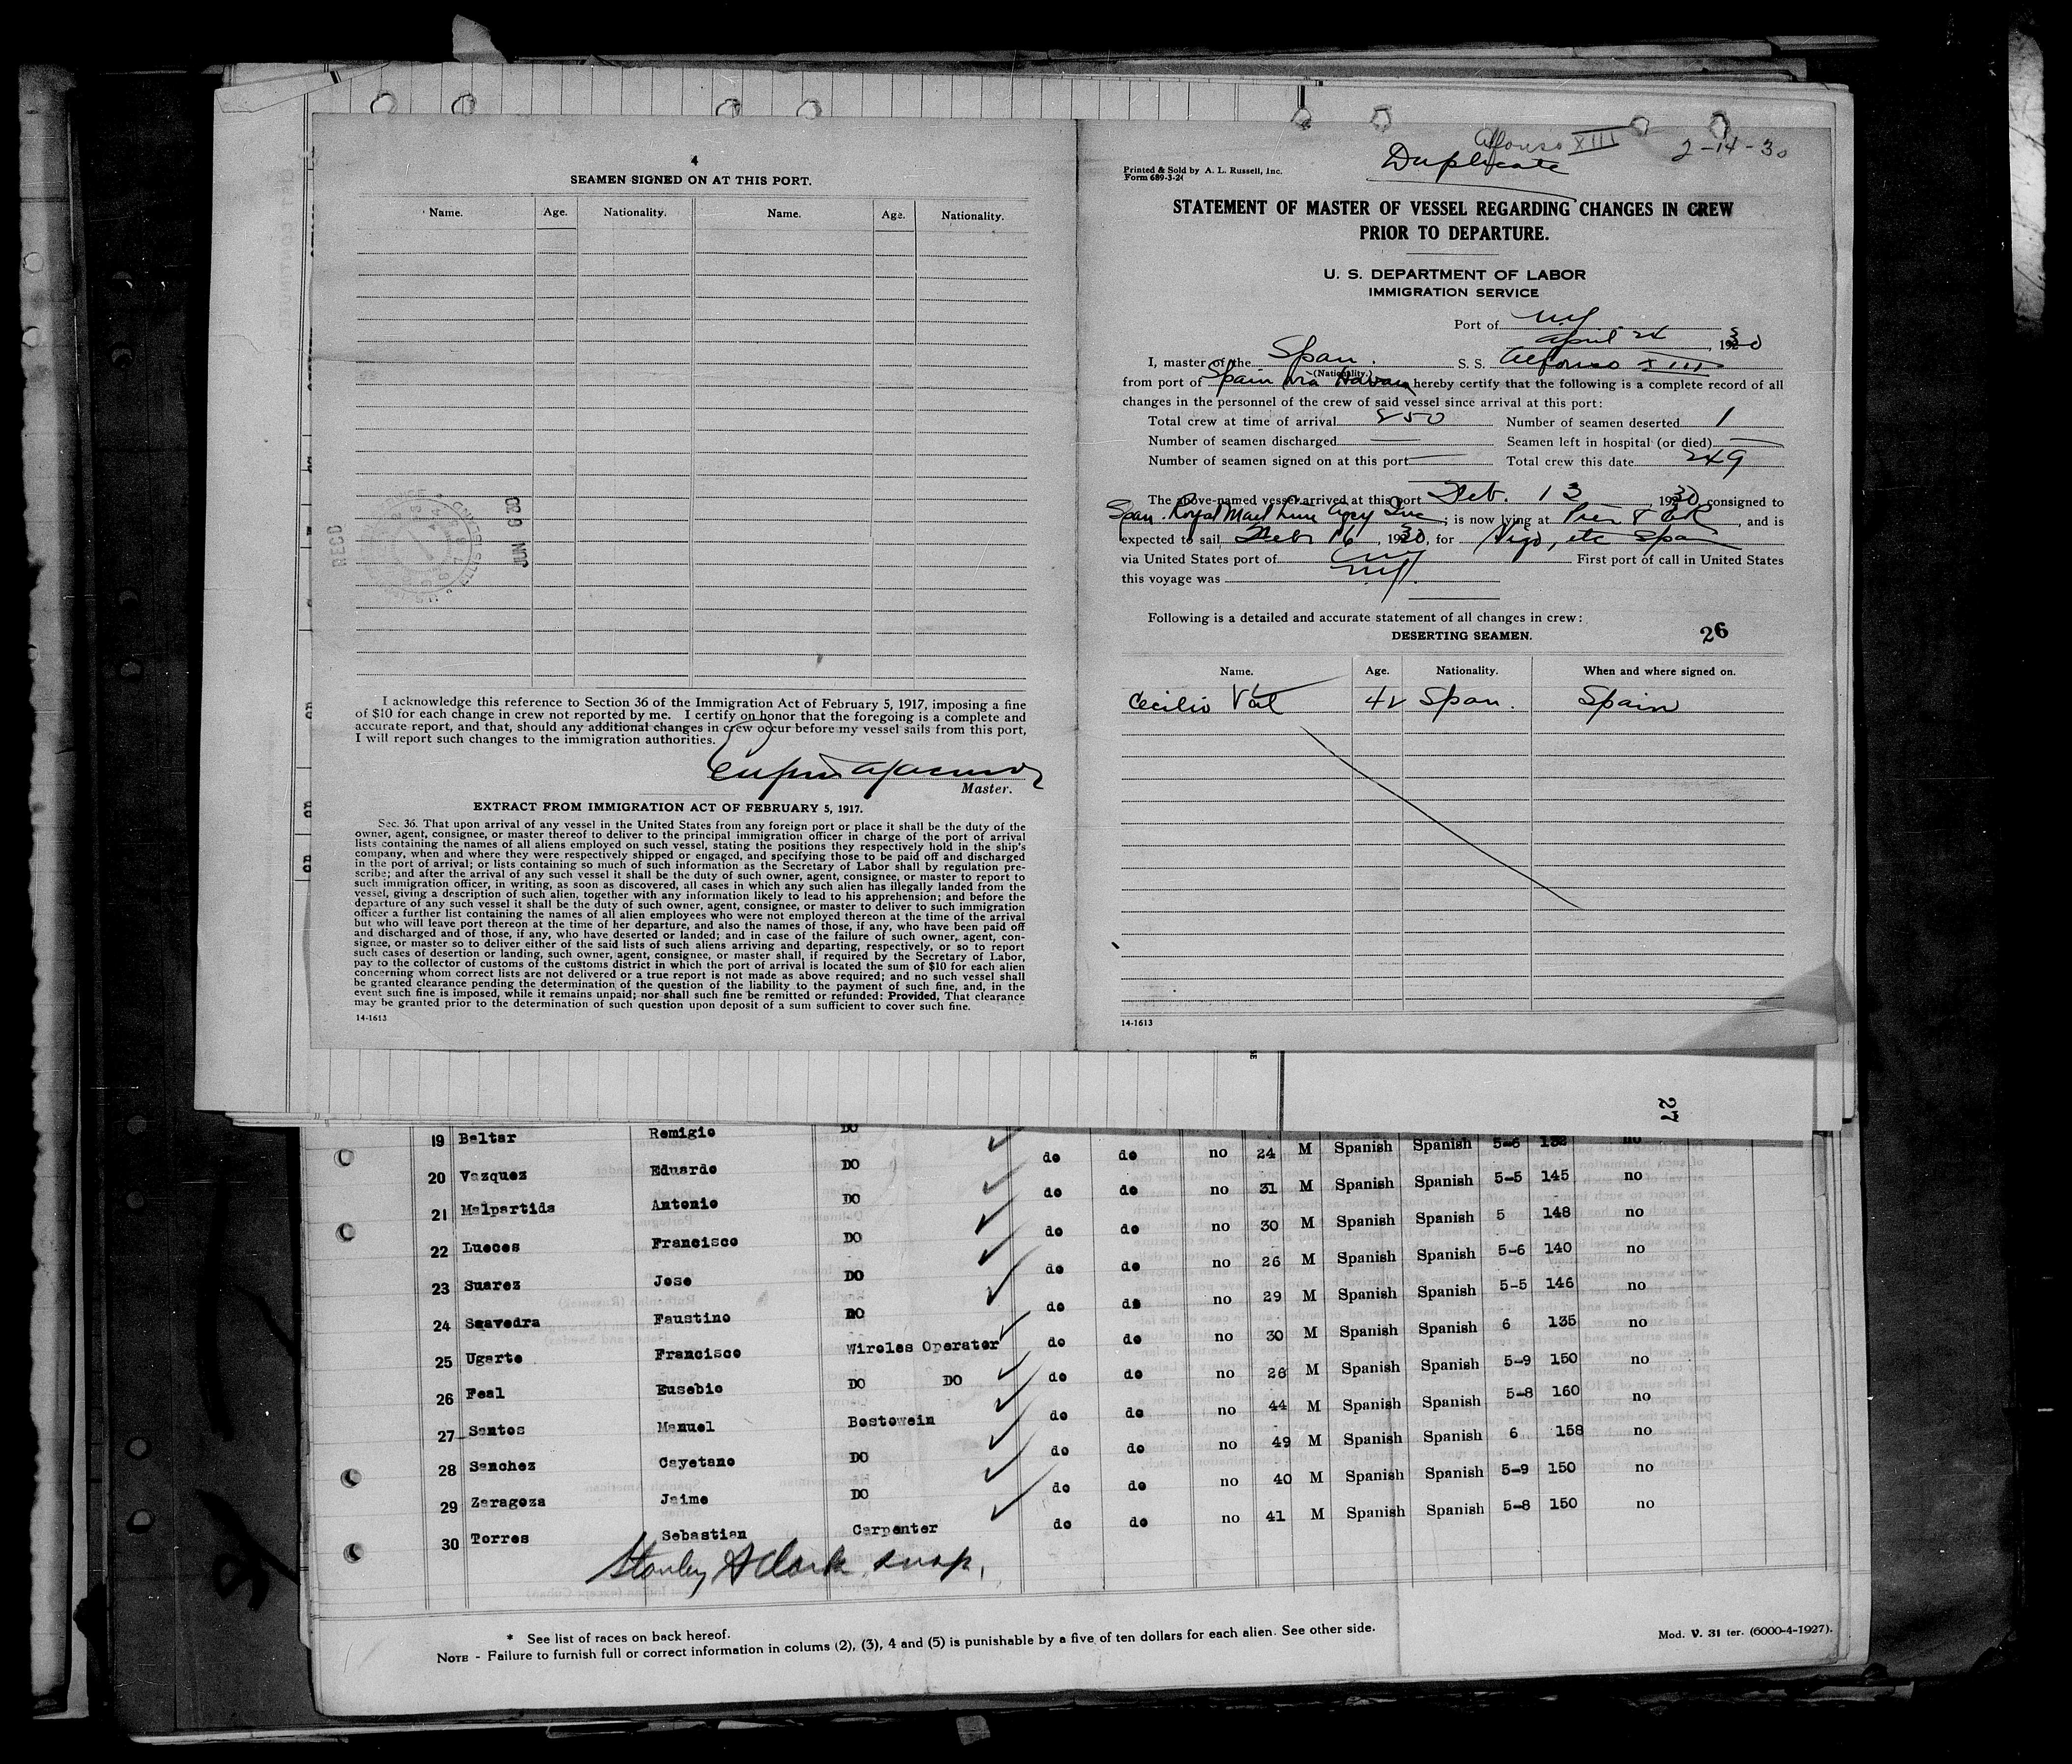 4
SEAMEN SIGNED ON AT THIS PORT.
Name. Age. Nationality. Name. Age. Nationality.
REC'D
JUN 9 30
I acknowledge this reference to Section 36 of the Immigration Act of February 5, 1917, imposing a fine
of $10 for each change in crew not reported by me. I certify on honor that the foregoing is a complete and
accurate report, and that, should any additional changes in crew occur before my vessel sails from this port,
I will report such changes to the immigration authorities.
Master.
EXTRACT FROM IMMIGRATION ACT OF FEBRUARY 5, 1917.
Sec. 36. That upon arrival of any vessel in the United States from any foreign port or place it shall be the duty of the
owner, agent, consignee, or master thereof to deliver to the principal immigration officer in charge of the port of arrival
lists containing the names of all aliens employed on such vessel, stating the positions they respectively hold in the ship's
company, when and where they were respectively shipped or engaged, and specifying those to be paid off and discharged
in the port of arrival; or lists containing so much of such information as the Secretary of Labor shall by regulation pre-
scribe; and after the arrival of any such vessel it shall be the duty of such owner, agent, consignee, or master to report to
such immigration officer, in writing, as soon as discovered, all cases in which any such alien has illegally landed from the
vessel, giving a description of such alien, together with any information likely to lead to his apprehension; and before the
departure of any such vessel it shall be the duty of such owner, agent, consignee, or master to deliver to such immigration
officer a further list containing the names of all alien employees who were not employed thereon at the time of the arrival
but who will leave port thereon at the time of her departure, and also the names of those, if any, who have been paid off
and discharged and of those, if any, who have deserted or landed; and in case of the failure of such owner, agent, con-
signee, or master so to deliver either of the said lists of such aliens arriving and departing, respectively, or so to report
such cases of desertion or landing, such owner, agent, consignee, or master shall, if required by the Secretary of Labor,
pay to the collector of customs of the customs district in which the port of arrival is located the sum of $10 for each alien
concerning whom correct lists are not delivered or a true report is not made as above required; and no such vessel shall
be granted clearance pending the determination of the question of the liability to the payment of such fine, and, in the
event such fine is imposed, while it remains unpaid; nor shall such fine be remitted or refunded: Provided, That clearance
may be granted prior to the determination of such question upon deposit of a sum sufficient to cover such fine.
14-1613
Alfonso XIII 2-14-30
Duplicate
Printed & Sold by A. L. Russell, Inc.
Form 689-3-24
STATEMENT OF MASTER OF VESSEL REGARDING CHANGES IN CREW
PRIOR TO DEPARTURE.
U. S. DEPARTMENT OF LABOR
IMMIGRATION SERVICE
Port of NY
April 24, 1930
I, master of the Span. S. S. Alfonso XIII
(Nationality.)
from port of Spain via Havana hereby certify that the following is a complete record of all
changes in the personnel of the crew of said vessel since arrival at this port:
Total crew at time of arrival 250 Number of seamen deserted 1
Number of seamen discharged — Seamen left in hospital (or died) —
Number of seamen signed on at this port — Total crew this date 249
The above-named vessel arrived at this port Feb. 13, 1930, consigned to
Span. Royal Mail Line Agcy Inc; is now lying at Pier 8 ER, and is
expected to sail Feb 16, 1930, for Vigo, etc Spain
via United States port of NY First port of call in United States
this voyage was NY.
Following is a detailed and accurate statement of all changes in crew:
DESERTING SEAMEN. 26
Name. Age. Nationality. When and where signed on.
Cecilio Val 42 Span. Spain
14-1613
27
19 Beltar Remigio DO
20 Vazquez Eduardo DO do do no 24 M Spanish Spanish 5-6 132 no
21 Malpartida Antonio DO do do no 31 M Spanish Spanish 5-5 145 no
22 Lueces Francisco DO do do no 30 M Spanish Spanish 5 148 no
23 Suarez Jose DO do do no 26 M Spanish Spanish 5-6 140 no
24 Saavedra Faustino DO do do no 29 M Spanish Spanish 5-5 146 no
25 Ugarte Francisco Wireles Operator do do no 30 M Spanish Spanish 6 135 no
26 Feal Eusebio DO DO do do no 26 M Spanish Spanish 5-9 150 no
27 Santos Manuel Bostowein do do no 44 M Spanish Spanish 5-8 160 no
28 Sanchez Cayetano DO do do no 49 M Spanish Spanish 6 158 no
29 Zaragoza Jaime DO do do no 40 M Spanish Spanish 5-9 150 no
30 Torres Sebastian Carpenter do do no 41 M Spanish Spanish 5-8 150 no
Stanley A Clark
* See list of races on back hereof.
NOTE - Failure to furnish full or correct information in colums (2), (3), 4 and (5) is punishable by a five of ten dollars for each alien. See other side.
Mod. V. 31 ter. (6000-4-1927).